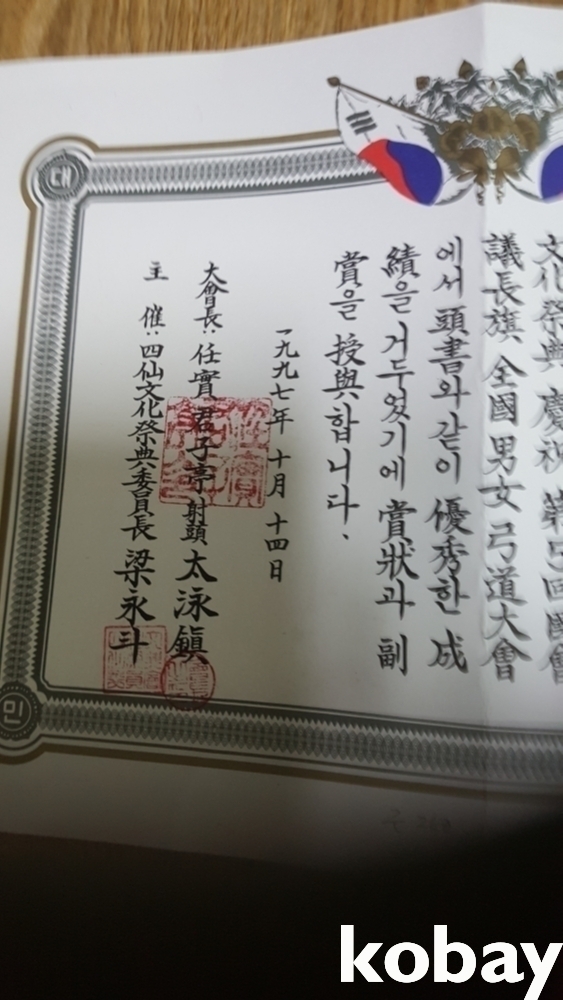 文化祭典 慶祝 第四回國會
議長旗 全國 男女 弓道大會
에서 頭書와 같이 優秀한 成
績을 거두었기에 賞狀과 副
賞을 授與합니다.
一九九七年 十月 十四日
大會長: 任實 君子亭 射頭 太泳鎭
主 催: 四仙文化祭典委員長 梁永斗
대
민
kobay